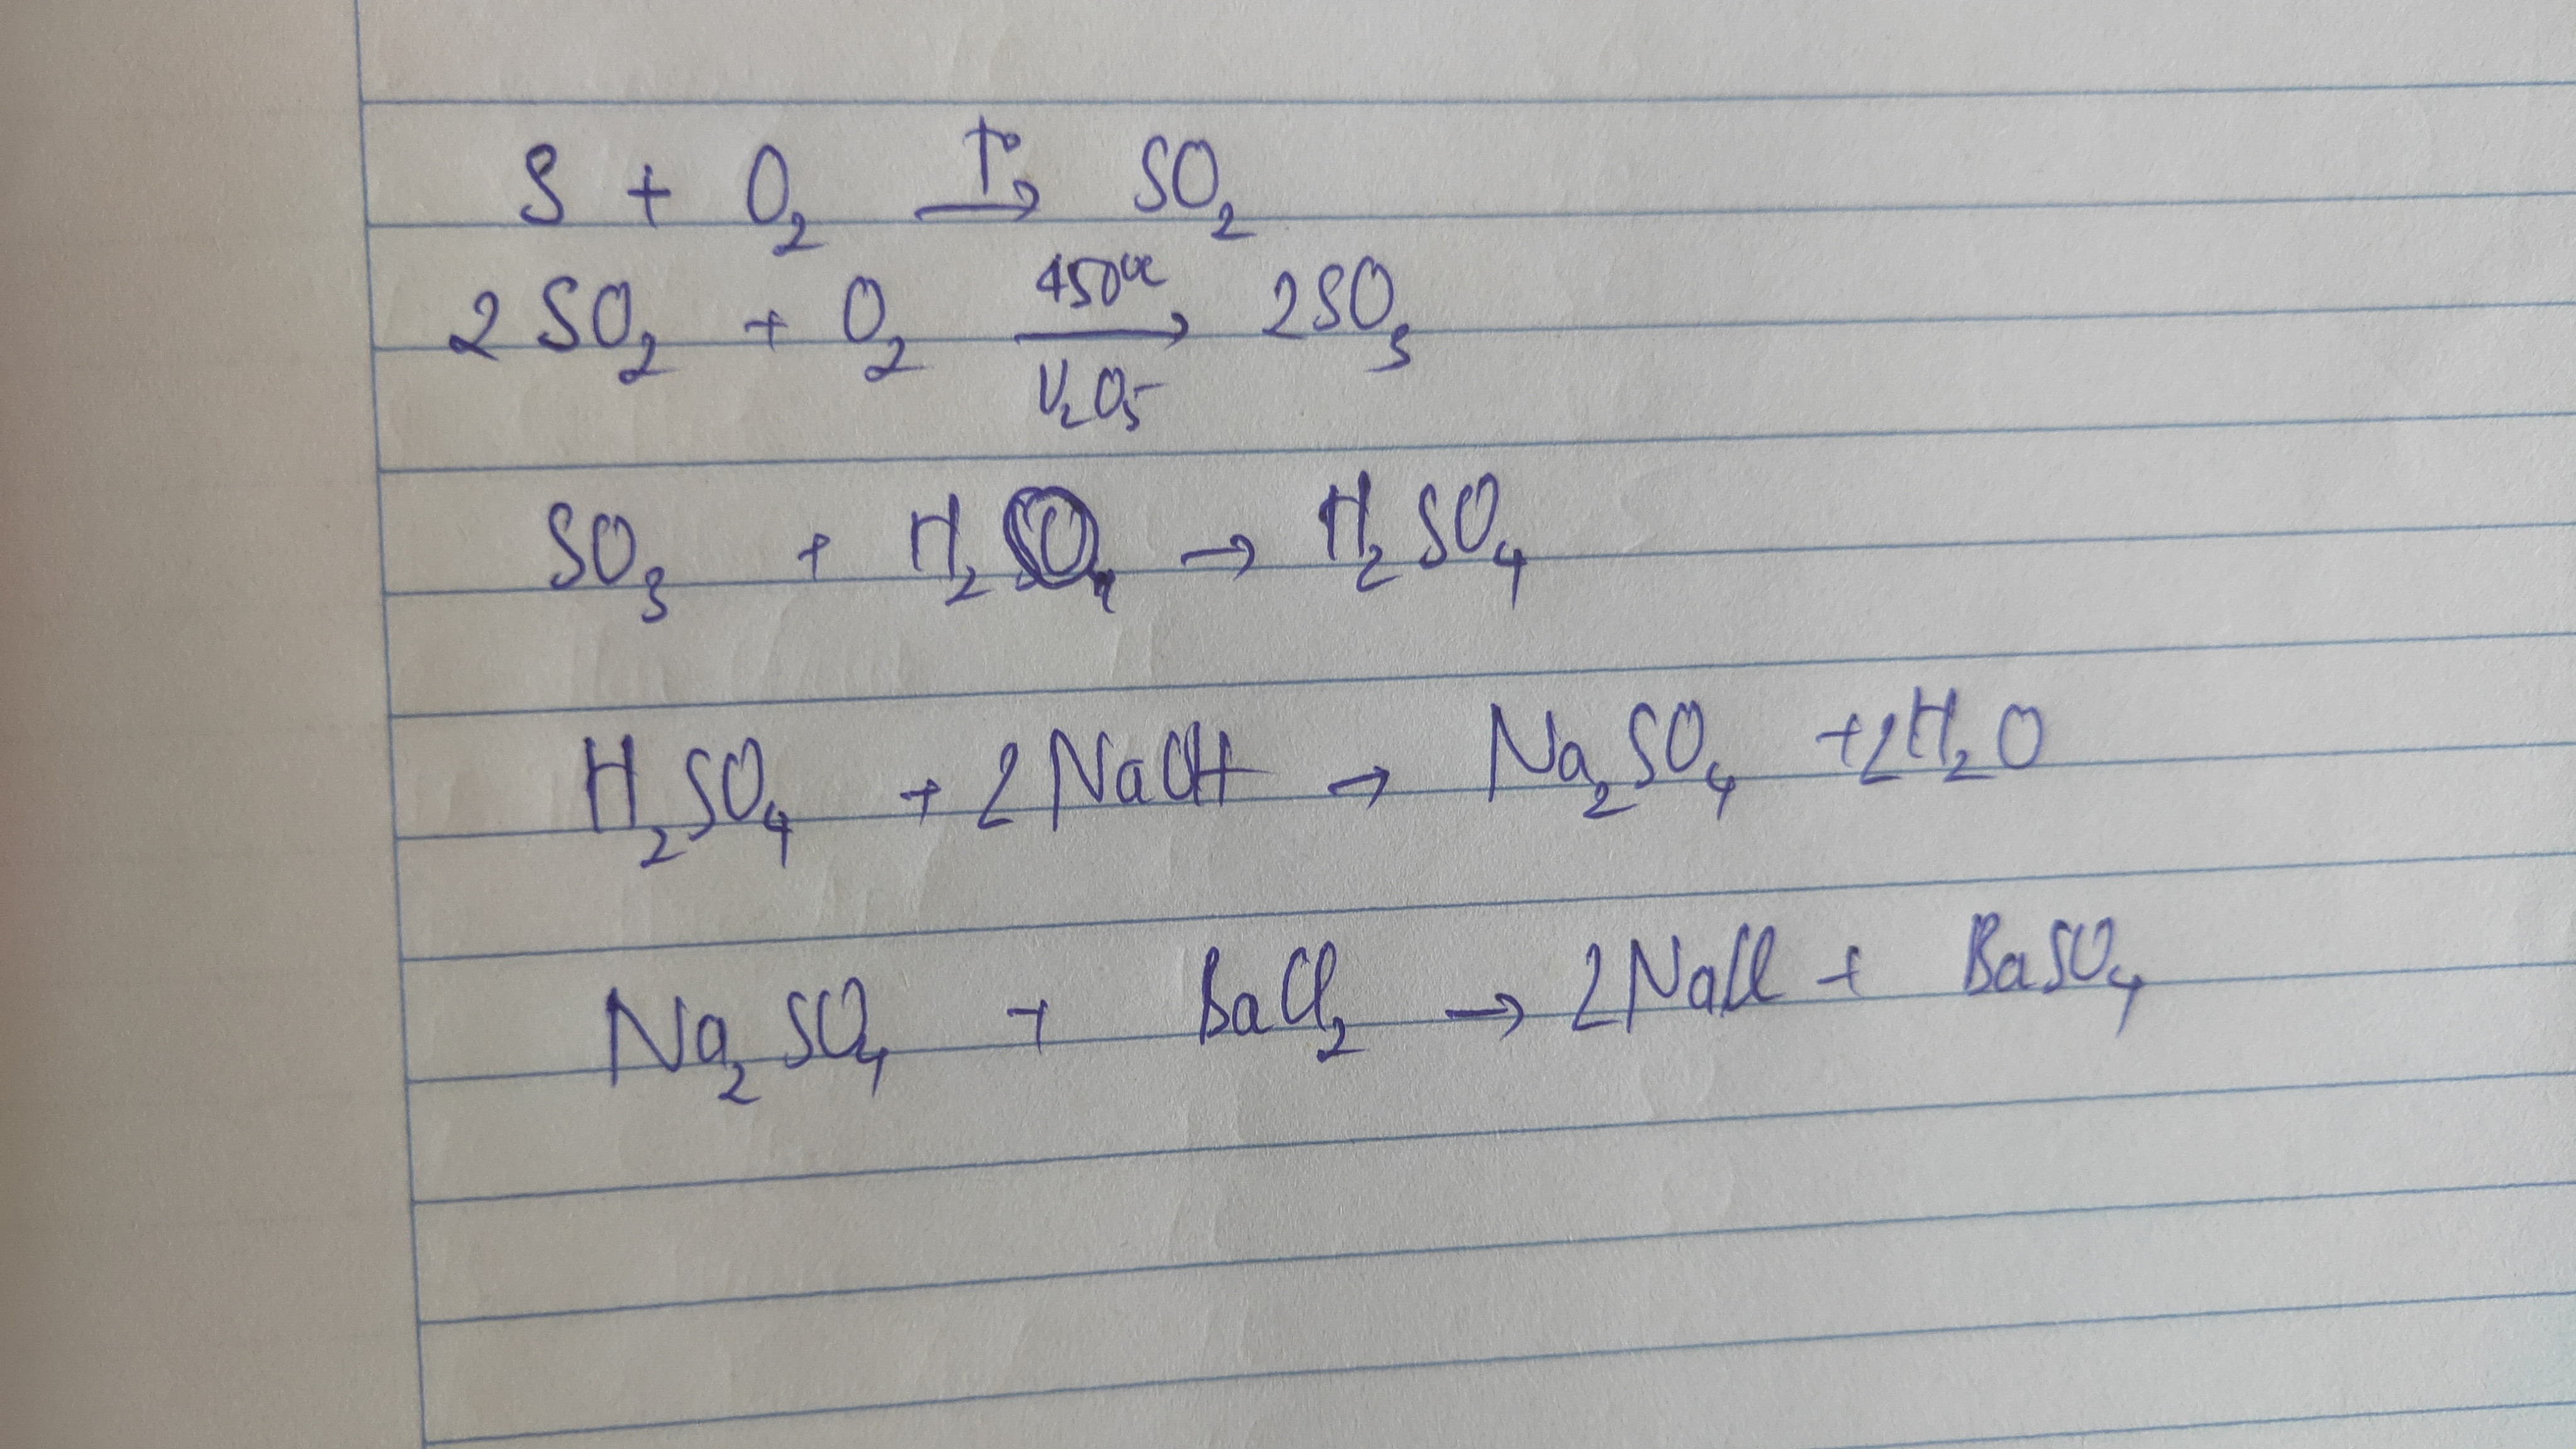 S + O₂ →(t°) SO₂
2SO₂ + O₂ →(450°C / V₂O₅) 2SO₃
SO₃ + H₂O → H₂SO₄
H₂SO₄ + 2NaOH → Na₂SO₄ + 2H₂O
Na₂SO₄ + BaCl₂ → 2NaCl + BaSO₄